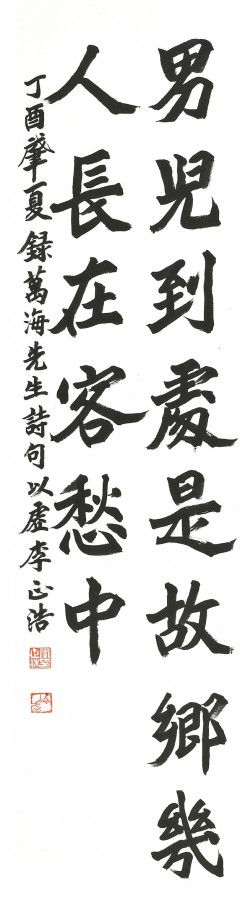 男兒到處是故鄉幾
人長在客愁中
丁酉肇夏録萬海先生詩句以虛李正浩